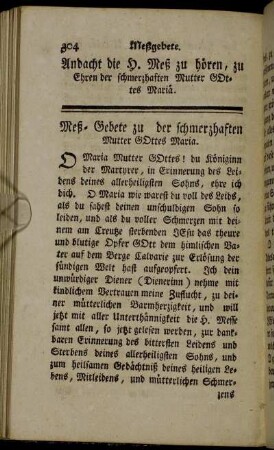 304 Meßgebete.
Andacht die H. Meß zu hören, zu
Ehren der schmerzhaften Mutter GOt-
tes Mariä.
Meß- Gebete zu der schmerzhaften
Mutter GOttes Maria.
O Maria Mutter GOttes! du Königinn
der Martyrer, in Erinnerung des Lei-
dens deines allerheiligsten Sohns, ehre ich
dich. O Maria wie warest du voll des Leids,
als du sahest deinen unschuldigen Sohn so
leiden, und als du voller Schmerzen mit dei-
nem am Creutze sterbenden JEsu das theure
und blutige Opfer GOtt dem himlischen Va-
ter auf dem Berge Calvarie zur Erlösung der
sündigen Welt hast aufgeopfert. Ich dein
unwürdiger Diener (Dienerinn) nehme mit
kindlichem Vertrauen meine Zuflucht, zu dei-
ner mütterlichen Barmherzigkeit, und will
jetzt mit aller Unterthännigkeit die H. Messe
samt allen, so jetzt gelesen werden, zur dank-
baren Erinnerung des bittersten Leidens und
Sterbens deines allerheiligsten Sohns, und
zum heilsamen Gedächtniß deines heiligen Le-
bens, Mitleidens, und mütterlichen Schmer-
zens